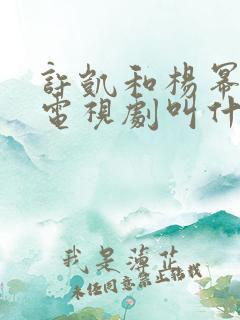 許凱和楊冪
電視劇叫什
我是薄芷
未經同意禁止轉載